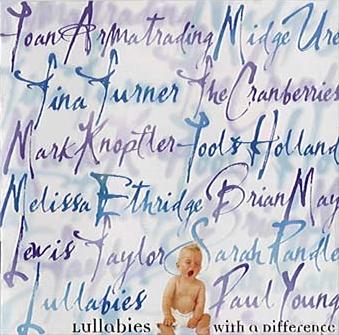 Joan Armatrading Midge Ure
Tina Turner The Cranberries
Mark Knopfler Jools Holland
Melissa Etheridge Brian May
Lewis Taylor Sarah Randle
Lullabies Paul Young
Lullabies with a Difference